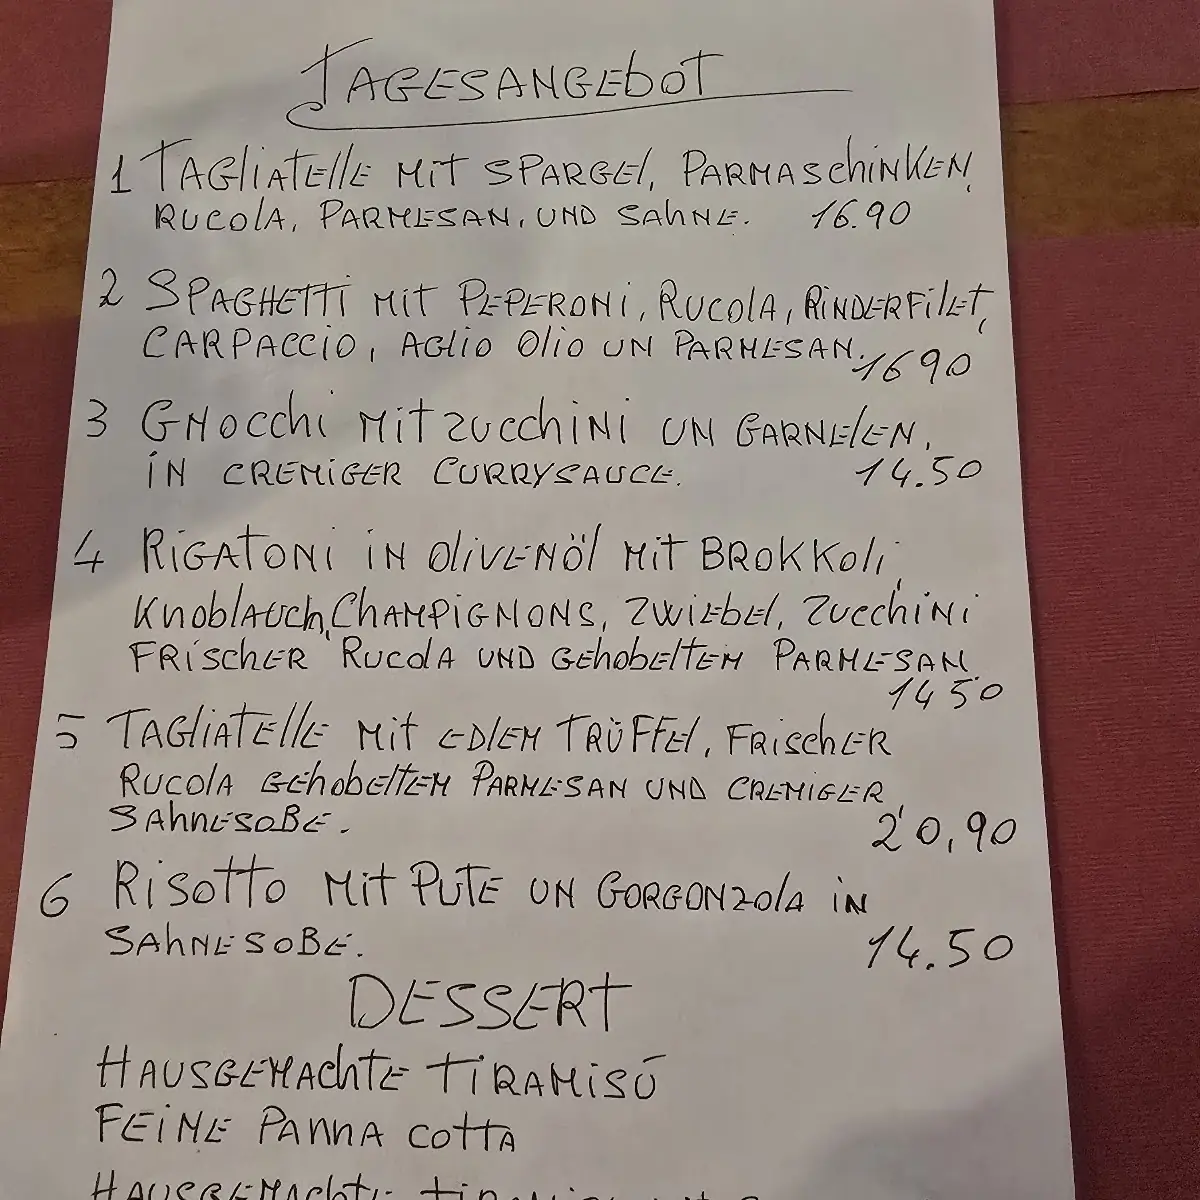 TAGESANGEBOT
1 TAGLIATELLE MIT SPARGEL, PARMASCHINKEN,
RUCOLA, PARMESAN, UND SAHNE. 16.90
2 SPAGHETTI MIT PEPERONI, RUCOLA, RINDERFILET,
CARPACCIO, AGLIO OLIO UN PARMESAN. 1690
3 GNOCCHI MIT ZUCCHINI UN GARNELEN,
IN CREMIGER CURRYSAUCE. 14.50
4 RIGATONI IN OLIVENÖL MIT BROKKOLI,
KNOBLAUCH, CHAMPIGNONS, ZWIEBEL, ZUCCHINI
FRISCHER RUCOLA UND GEHOBELTEM PARMESAN.
14 50
5 TAGLIATELLE MIT EDLEM TRÜFFEL, FRISCHER
RUCOLA GEHOBELTEM PARMESAN UND CREMIGER,
SAHNESOBE.
20,90
6 RISOTTO MIT PUTE UN GORGONZOLA IN
SAHNESOBE. 14.50
DESSERT
HAUSGEMACHTE TIRAMISÚ
FEINE PANNA COTTA
HAUSGEMACHTE